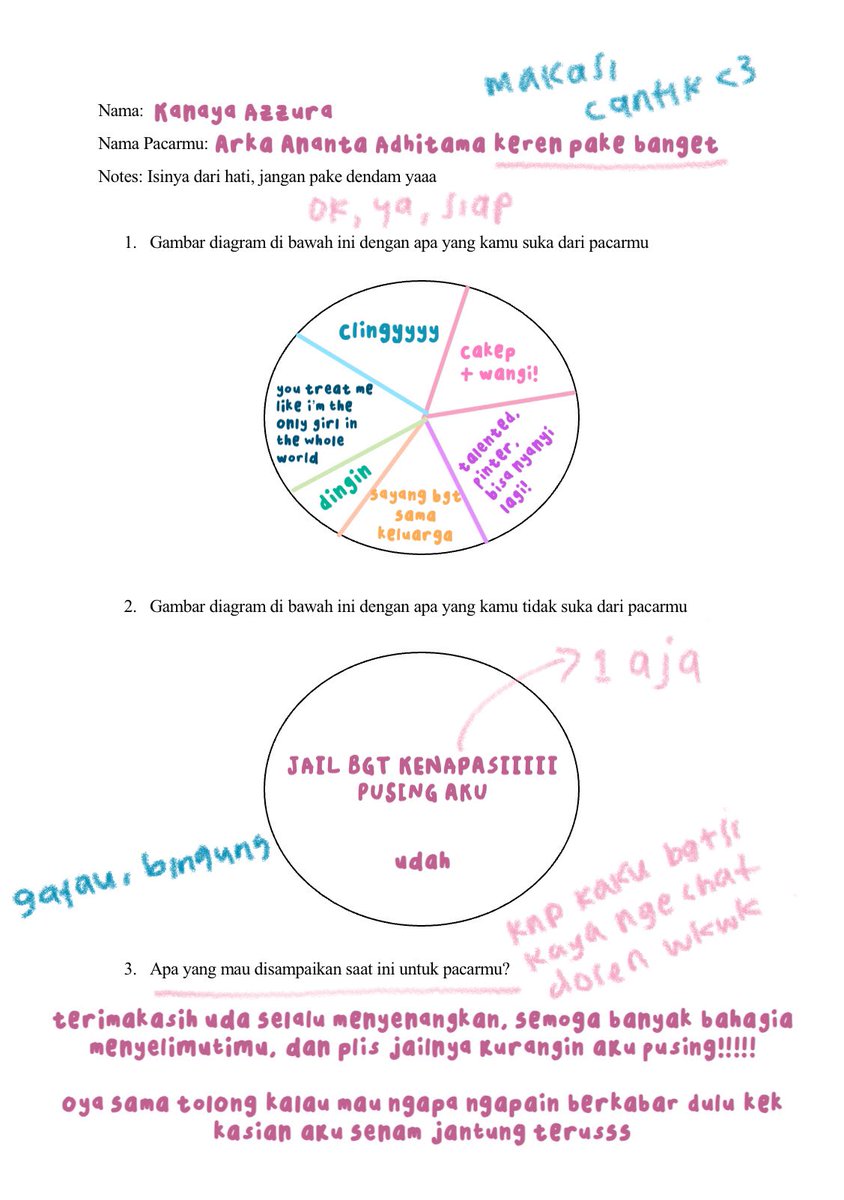 MAKASI
cantik <3
Nama: Kanaya Azzura
Nama Pacarmu: Arka Ananta Adhitama keren pake banget
Notes: Isinya dari hati, jangan pake dendam yaaa
OK, ya, siap
1. Gambar diagram di bawah ini dengan apa yang kamu suka dari pacarmu
clingyyyy
cakep
+ wangi!
you treat me
like i'm the
only girl in
the whole
world
talented,
pinter,
bisa nyanyi
lagi!
dingin
sayang bgt
sama
keluarga
2. Gambar diagram di bawah ini dengan apa yang kamu tidak suka dari pacarmu
1 aja
JAIL BGT KENAPASIIIII
PUSING AKU
udah
gatau, bingung
knp kaku bgtsi
kaya nge chat
dosen wkwk
3. Apa yang mau disampaikan saat ini untuk pacarmu?
terimakasih uda selalu menyenangkan, semoga banyak bahagia
menyelimutimu, dan plis jailnya kurangin aku pusing!!!!!
oya sama tolong kalau mau ngapa ngapain berkabar dulu kek
kasian aku senam jantung terusss